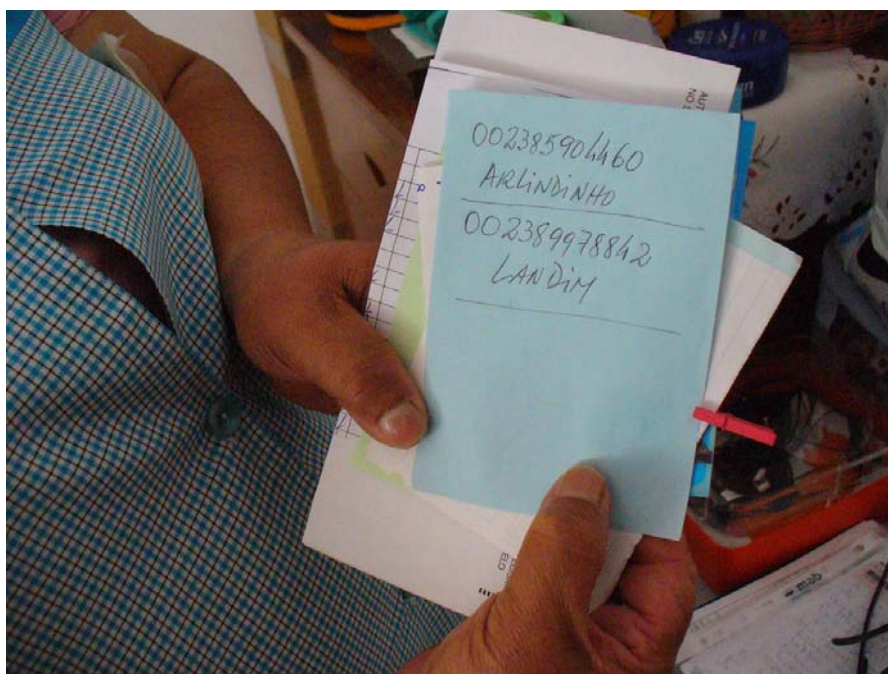 002385904460
ARLINDINHO
002389978842
LANDIM